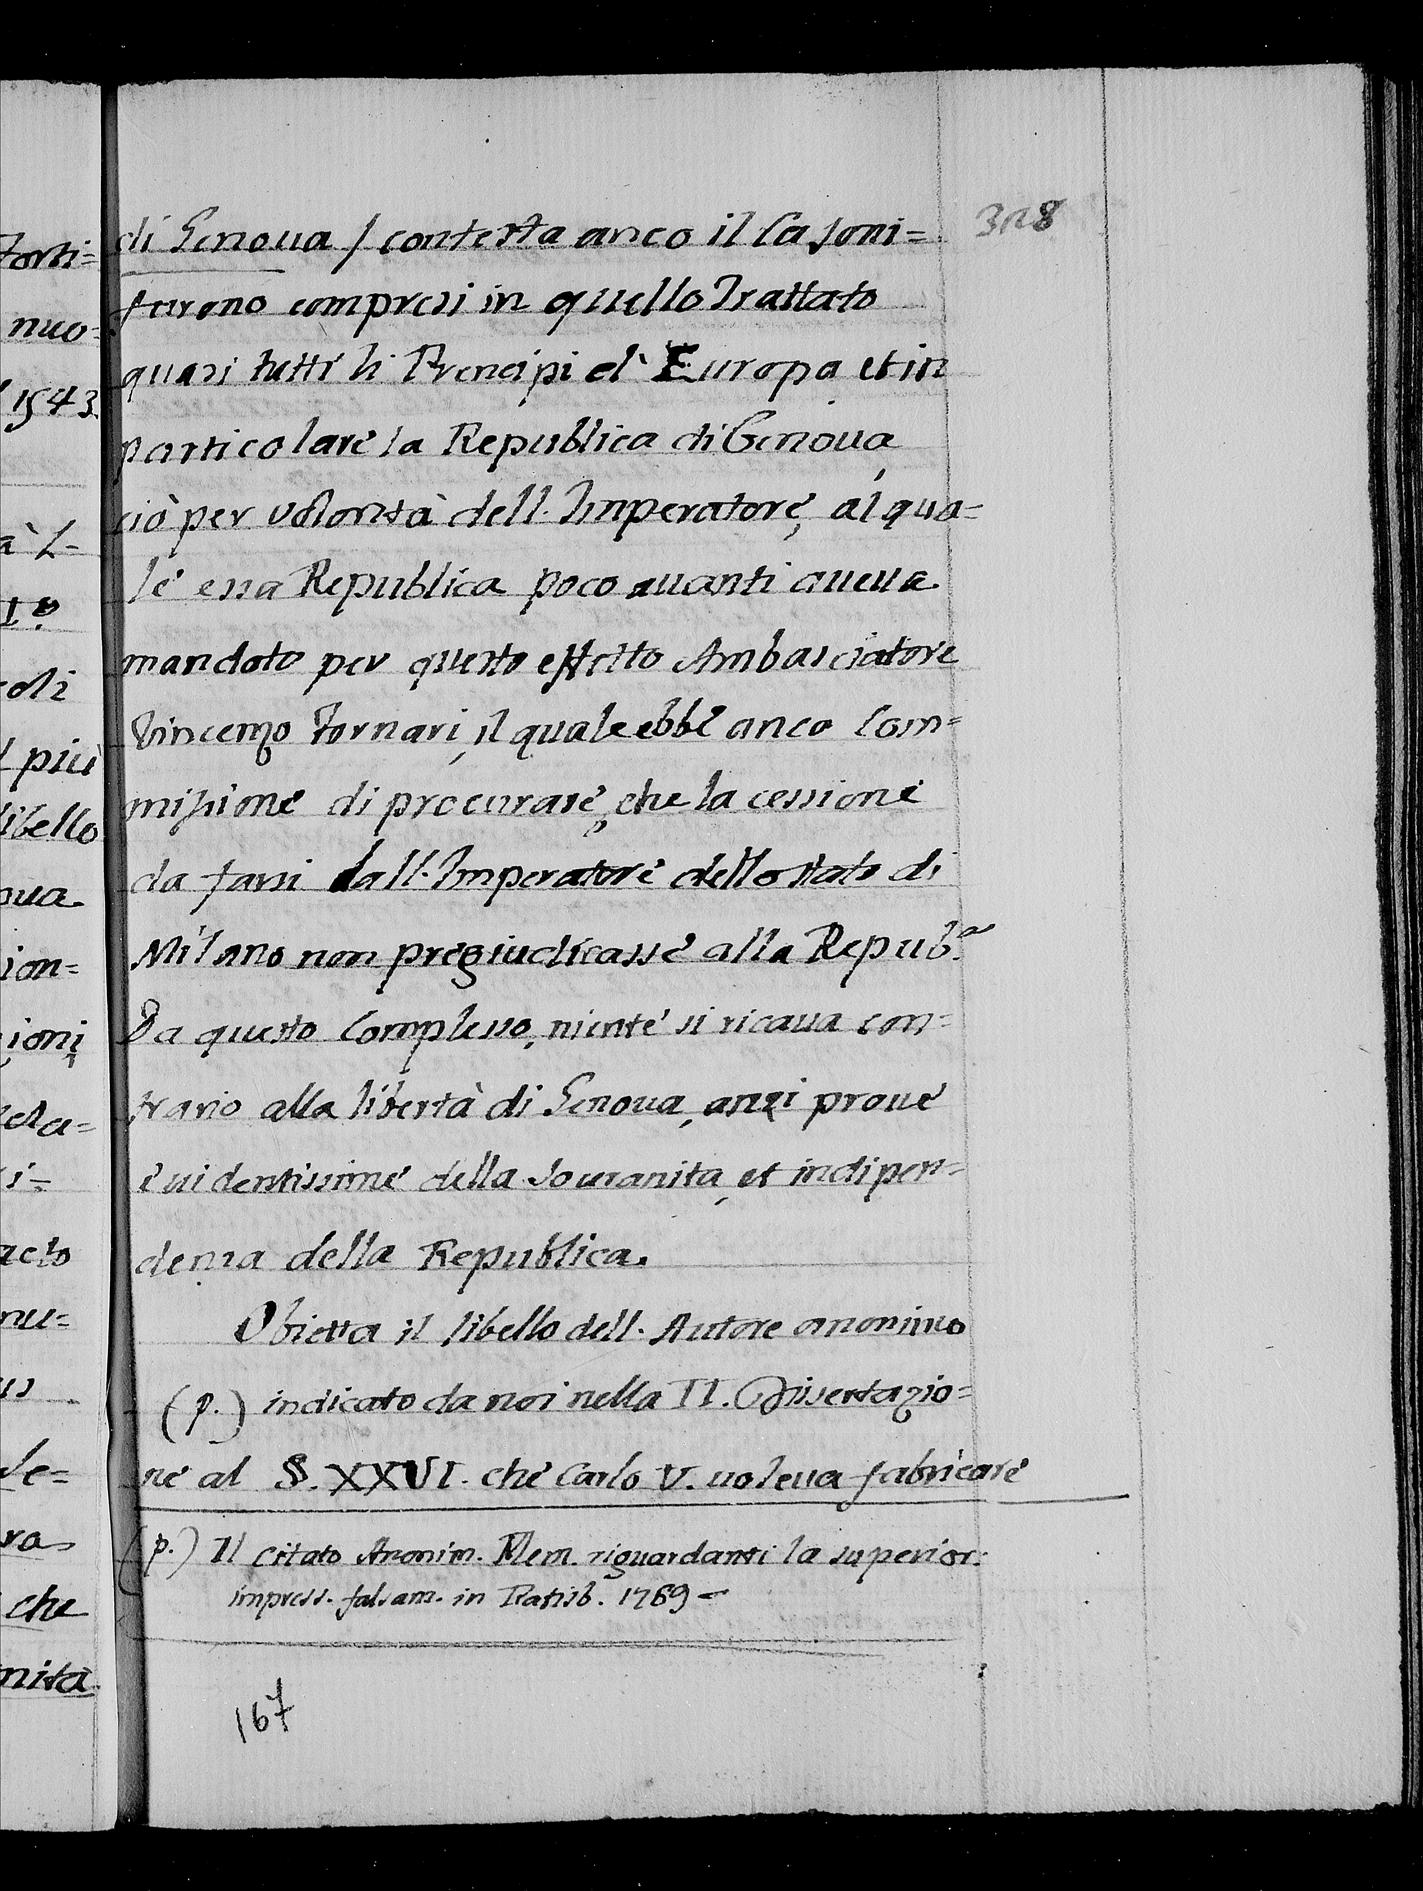 328
di Genoua / contesta anco il Casoni =
furono compresi in quello Trattato
quasi tutti li Prencipi d' Europa et in
particolare la Republica di Genoua
ciò per volontà dell. Imperatore, al qua=
le essa Republica poco auanti aueua
mandato per questo effetto Ambasciatore
Vincenzo Fornari, il quale ebbe anco Com=
missione di procurare, che la cessione
da farsi dall. Imperatore dello stato di
Milano non pregiudicasse alla Repub.a
Da questo Complesso, niente si ricaua con=
trario alla libertà di Genoua, anzi proue
euidentissime della Souranita, et indipen=
denza della Republica.
Obietta il libello dell. Autore anonimo
(p.) indicato da noi nella II. Dissertazio=
ne al §. XXVI. che Carlo V. uoleua fabricare
(p.) Il citato Anonim. Mem. riguardanti la superior.
impress. falsam. in Ratisb. 1769 -
167
forti=
nuo=
1543.
à L-
I°
oli
più
libello
oua
ion=
ioni
da=
i=
acto
nu=
us
de=
ra
che
nità